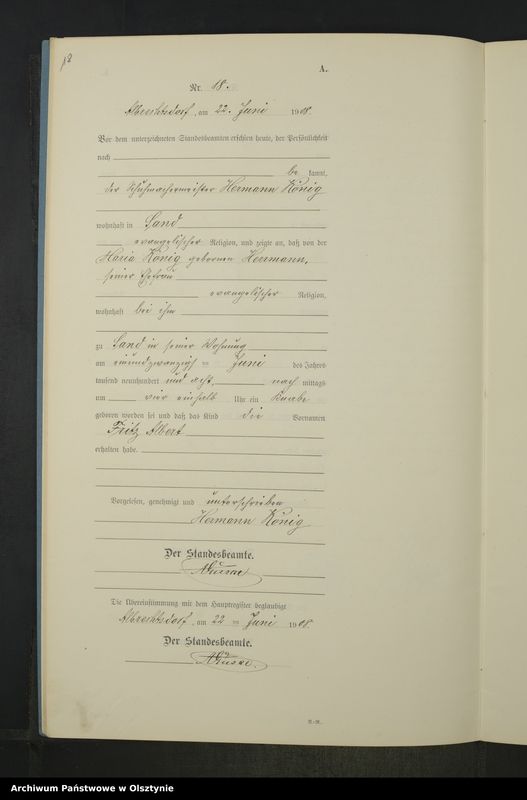 18
A.
Nr. 18.
Albrechtsdorf, am 22. Juni 1908.
Vor dem unterzeichneten Standesbeamten erschien heute, der Persönlichkeit
nach
be kannt,
der Schuhmachermeister Hermann König
wohnhaft in Sand
evangelischer Religion, und zeigte an, daß von der
Maria König geborenen Herrmann,
seiner Ehefrau
evangelischer Religion,
wohnhaft bei ihm
zu Sand in seiner Wohnung
am einundzwanzigsten Juni des Jahres
tausend neunhundert und acht nach mittags
um vier einhalb Uhr ein Knabe
geboren worden sei und daß das Kind die Vornamen
Fritz Albert
erhalten habe.
Vorgelesen, genehmigt und unterschrieben
Hermann König
Der Standesbeamte.
Die Übereinstimmung mit dem Hauptregister beglaubigt
Albrechtsdorf, am 22 Juni 1908.
Der Standesbeamte.
Archiwum Państwowe w Olsztynie